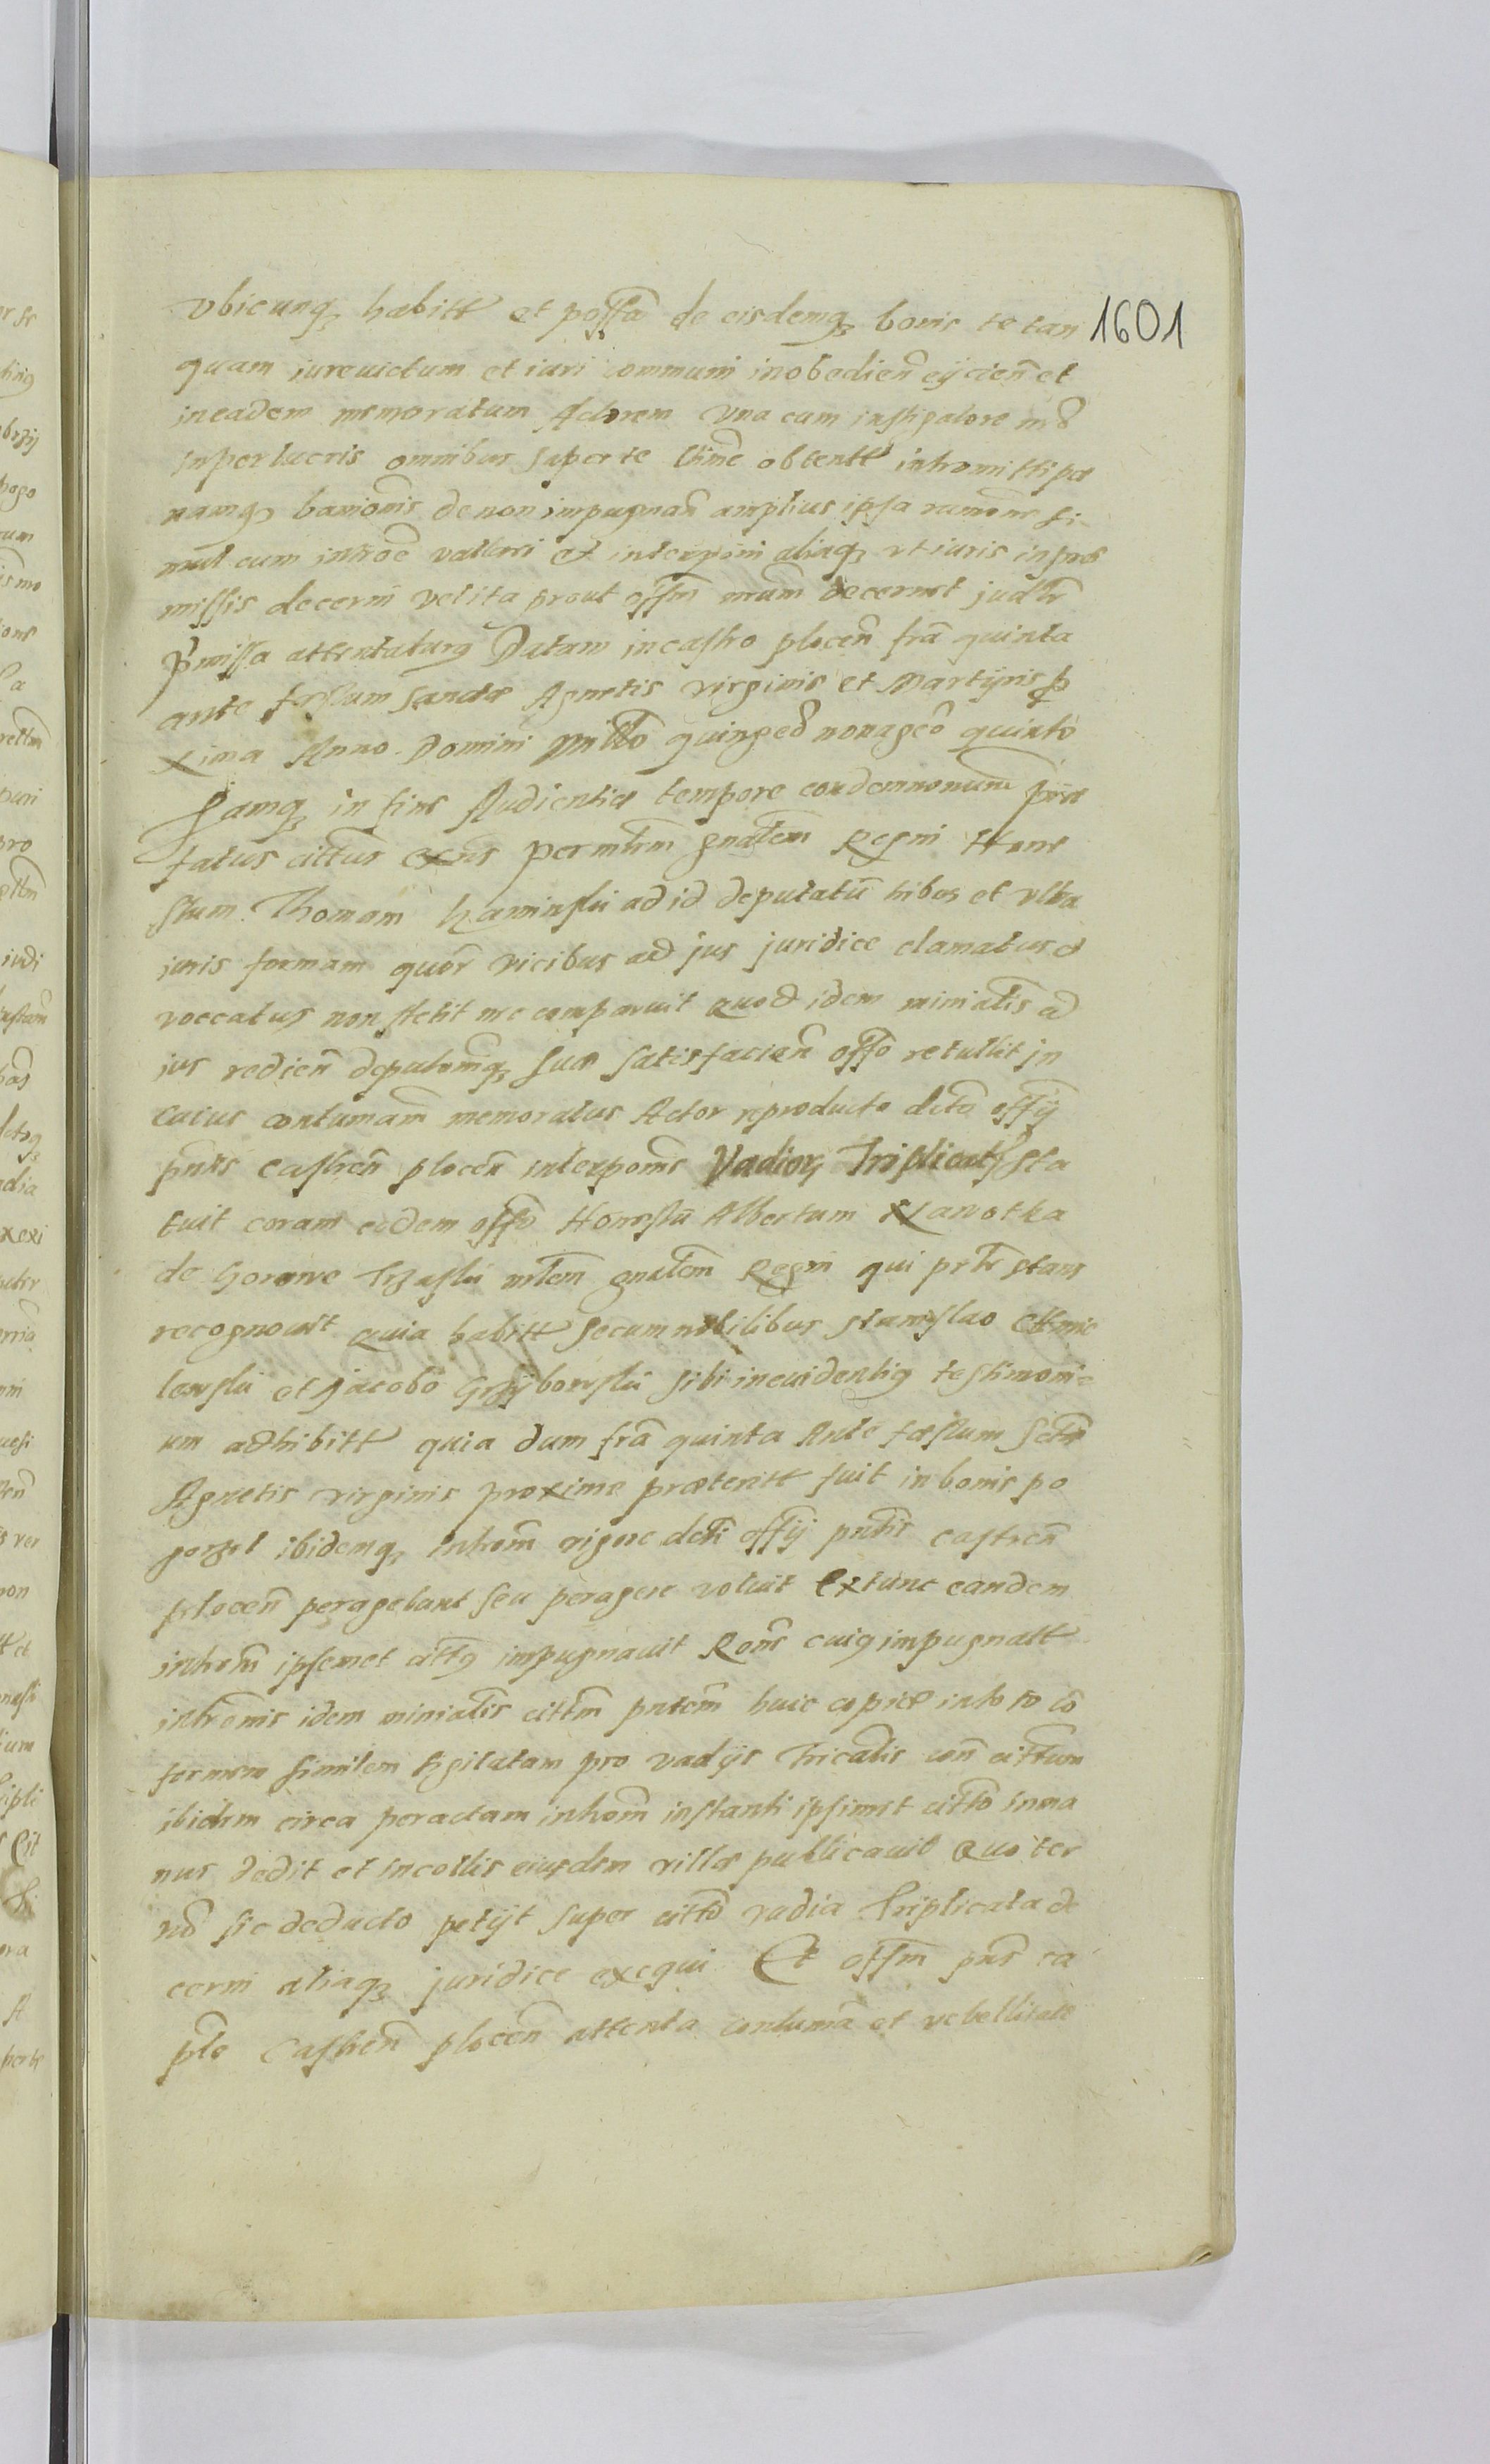 1601
vbicunq habitt et possa de eisdemq bonis te tan
quam iurevictum et iuri communi inobedien eycien et
in eadem memoratum Actorem vna cum instigatore
super lucris omnibus super te obtentt intromitti pae
namq banionis de non impugnan amplius ipsa rumone si
mul cum vallari et interponi aliaq vt iuris in prae
missis decerni vel ita prout offm nrum decernet
pmissa attentaturq Datum in castro plocen fra quinta
ante festum Sanctae Agnetis virginis et Martyris p
xima Anno Domini millo quinged nonageo quinto
Jamq in fine Audientiae tempore condemnonum
tatus cittus exns per mtrm gnalem Regni Hone
stum Thomam Kaminski ad id deputatu tribus et vltra
iuris formam quor vicibus ad jus juridice clamatus et
voccatus non stetit nec comparuit quod idem minialis ad
ius redien deputonq suae satisfacien offo retullit in
cuius contumam memoratus Actor reproducto dcto offy
pntis Castren plocen interponis Vadior Triplicat Sta
tuit coram eodem offo Honestu Albertum
de Gorowe mtem gnalem Regni qui pntr stans
recognouit quia habitt secum nobilibus Stanislao
lewski et Jacobo Grzyborwski sibi in euidentiq testimoni
um adhibitt quia dum fra quinta Ante festum Sctae
Agnetis virginis proxime praeteritt fuit in bonis po
gorzel ibidemq introm vigore dcti offy pntis castren
plocen peragebant seu peragere voluit Extunc eandem
introm ipsemet cittq impugnauit Rone cuiq impugnatt
intromis idem minialis cittm pntem huic copiae in toto co
formem similem sigilatam pro vadys tricatis con cittum
ibidem circa peractam introm instanti ipsimet citto in ma
nus dedit et incollis eiusdem villae publicauit Quo ter
no sic deducto petyt super citto vadia Triplicata de
cerni aliaq juridice exequi Et offm pns ca
ple Castren plocen attenta contuma et rebellitate